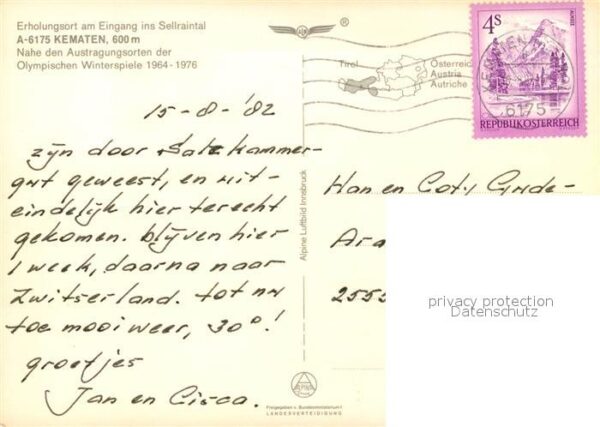 Erholungsort am Eingang ins Sellraintal
A-6175 KEMATEN, 600 m
Nahe den Austragungsorten der
Olympischen Winterspiele 1964-1976
®
Tirol
Österreich
Austria
Autriche
4s
KEMATEN
6175
REPUBLIK ÖSTERREICH
15-8-'82
zijn door Salzkammer-
gut geweest, en uit-
eindelijk hier terecht
gekomen. blijven hier
1 week, daarna naar
Zwitserland. tot nu
toe mooi weer, 30°!
groetjes
Jan en Cisca.
Alpine Luftbild Innsbruck
Han en Coty
Ara
2555
privacy protection
Datenschutz
Freigegeben v. Bundesministerium f.
LANDESVERTEIDIGUNG